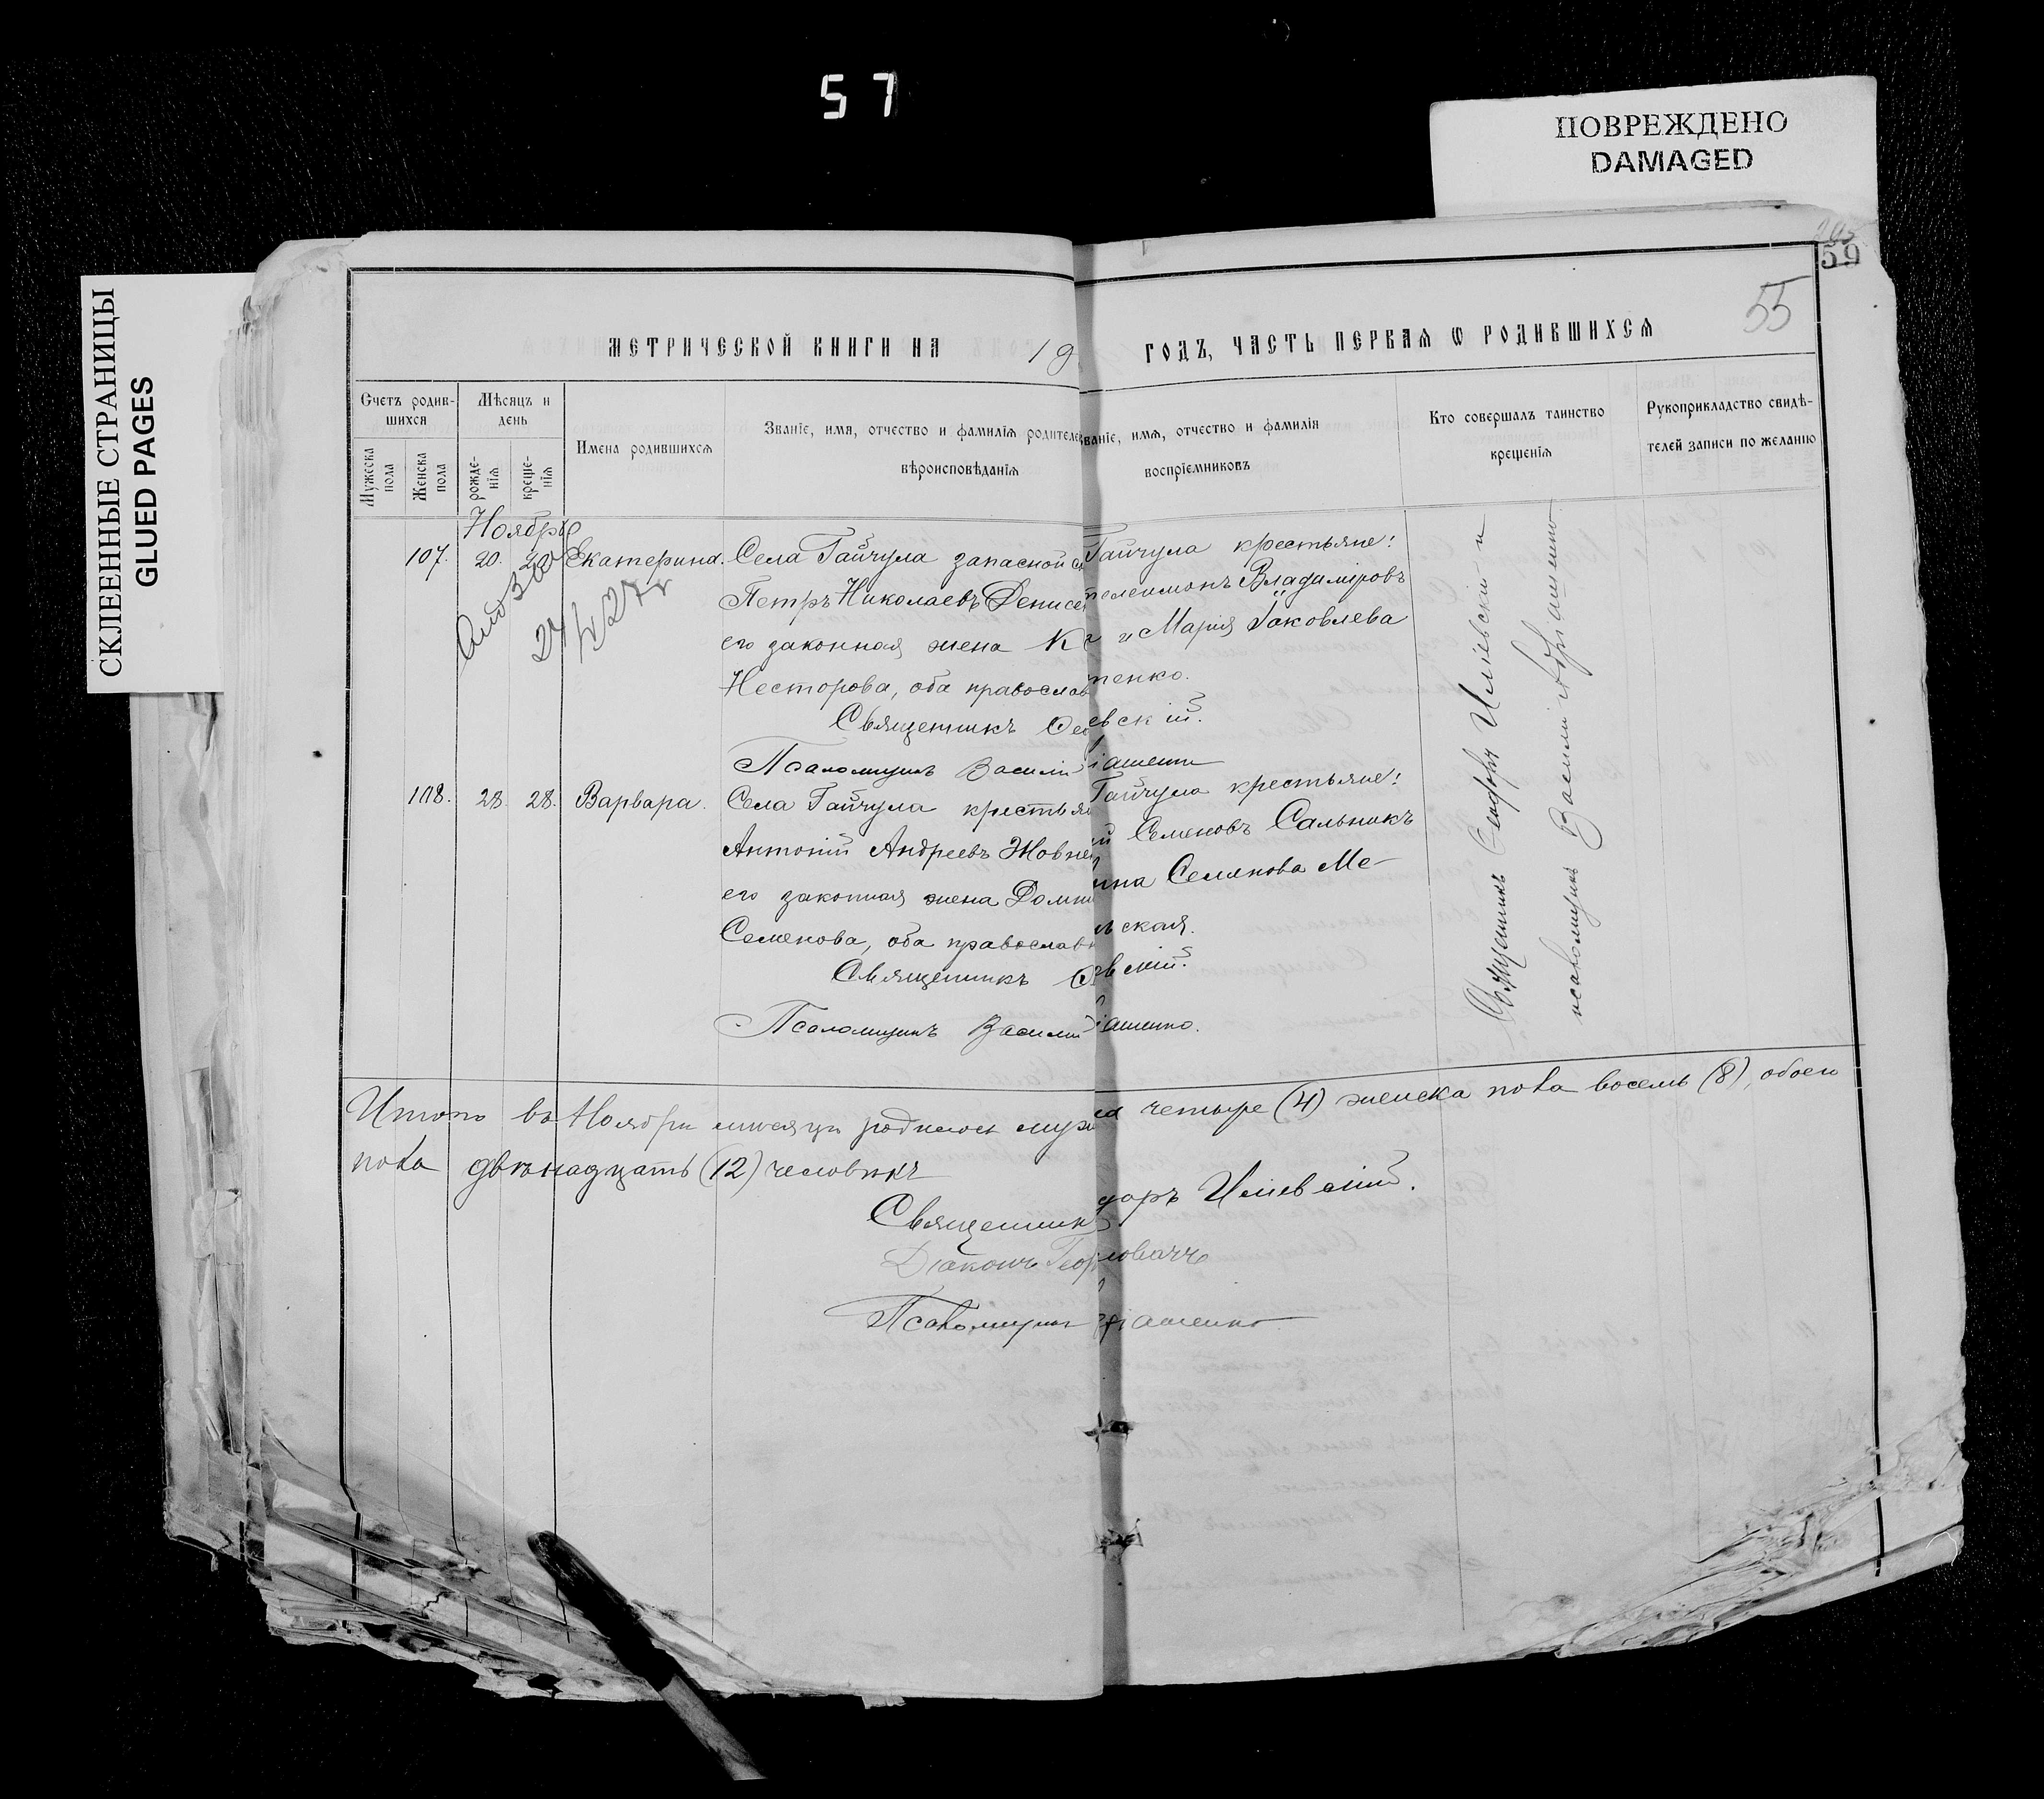 57
ПОВРЕЖДЕНО
DAMAGED
СКЛЕЕННЫЕ СТРАНИЦЫ
GLUED PAGES
59
55
МЕТРИЧЕСКОЙ КНИГИ НА 19
ГОДЪ, ЧАСТЬ ПЕРВАЯ Ѡ РОДИВШИХСЯ
Счетъ родив-
шихся
Мужеска
пола
Женска
пола
Мѣсяцъ и
день
рожде-
нія
креще-
нія
Имена родившихся
Званіе, имя, отчество и фамилія родителе
вѣроисповѣданія
ваніе, имя, отчество и фамилія
воспріемниковъ
Кто совершалъ таинство
крещенія
Рукоприкладство свидѣ-
телей записи по желанію
Ноябрь
107. 20. 20 Екатерина. Села Гайчула запасной
Петръ Николаевъ Денисе
его законная жена К
Несторова, оба православ
Священникъ Ѳео
Псаломщикъ Василій
Гайчула крестьяне:
телеимонъ Владиміровъ
и Марія Іаковлева
тенко.
евскій.
іашенко
108. 28. 28. Варвара. Села Гайчула крестья
Антоній Андреевъ Жовне
его законная жена Домни
Семенова, оба православ
Священникъ Ѳ
Псаломщикъ Василій
Гайчула крестьяне:
ій Семеновъ Сальникъ
нна Семенова Ме-
льская.
евскій.
іашенко.
Священникъ Илевскій и
псаломщикъ Василій
Итого въ Ноябрѣ мѣсяцѣ родилось муж
ка четыре (4) женска пола восемь (8), обоего
пола двѣнадцать (12) человѣкъ
Священникъ
доръ Илевскій.
Діаконъ Геор
Псаломщикъ
іашенко